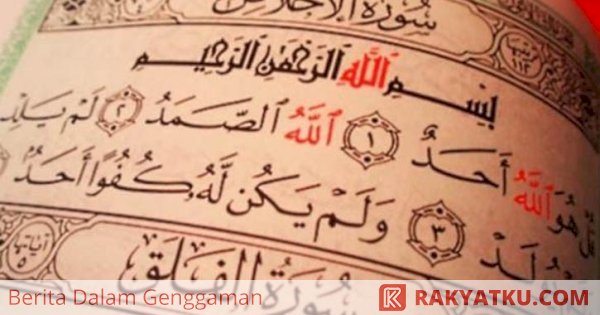 سُورَةُ الإِخْلَاصِ
بِسْمِ ٱللَّهِ ٱلرَّحْمَٰنِ ٱلرَّحِيمِ
هُوَ ٱللَّهُ أَحَدٌ ١ ٱللَّهُ ٱلصَّمَدُ ٢ لَمْ يَلِدْ
٣ وَلَمْ يَكُن لَّهُۥ كُفُوًا أَحَدٌ
سُورَةُ الفَلَقِ
آياتها ٥
Berita Dalam Genggaman
RAKYATKU.COM